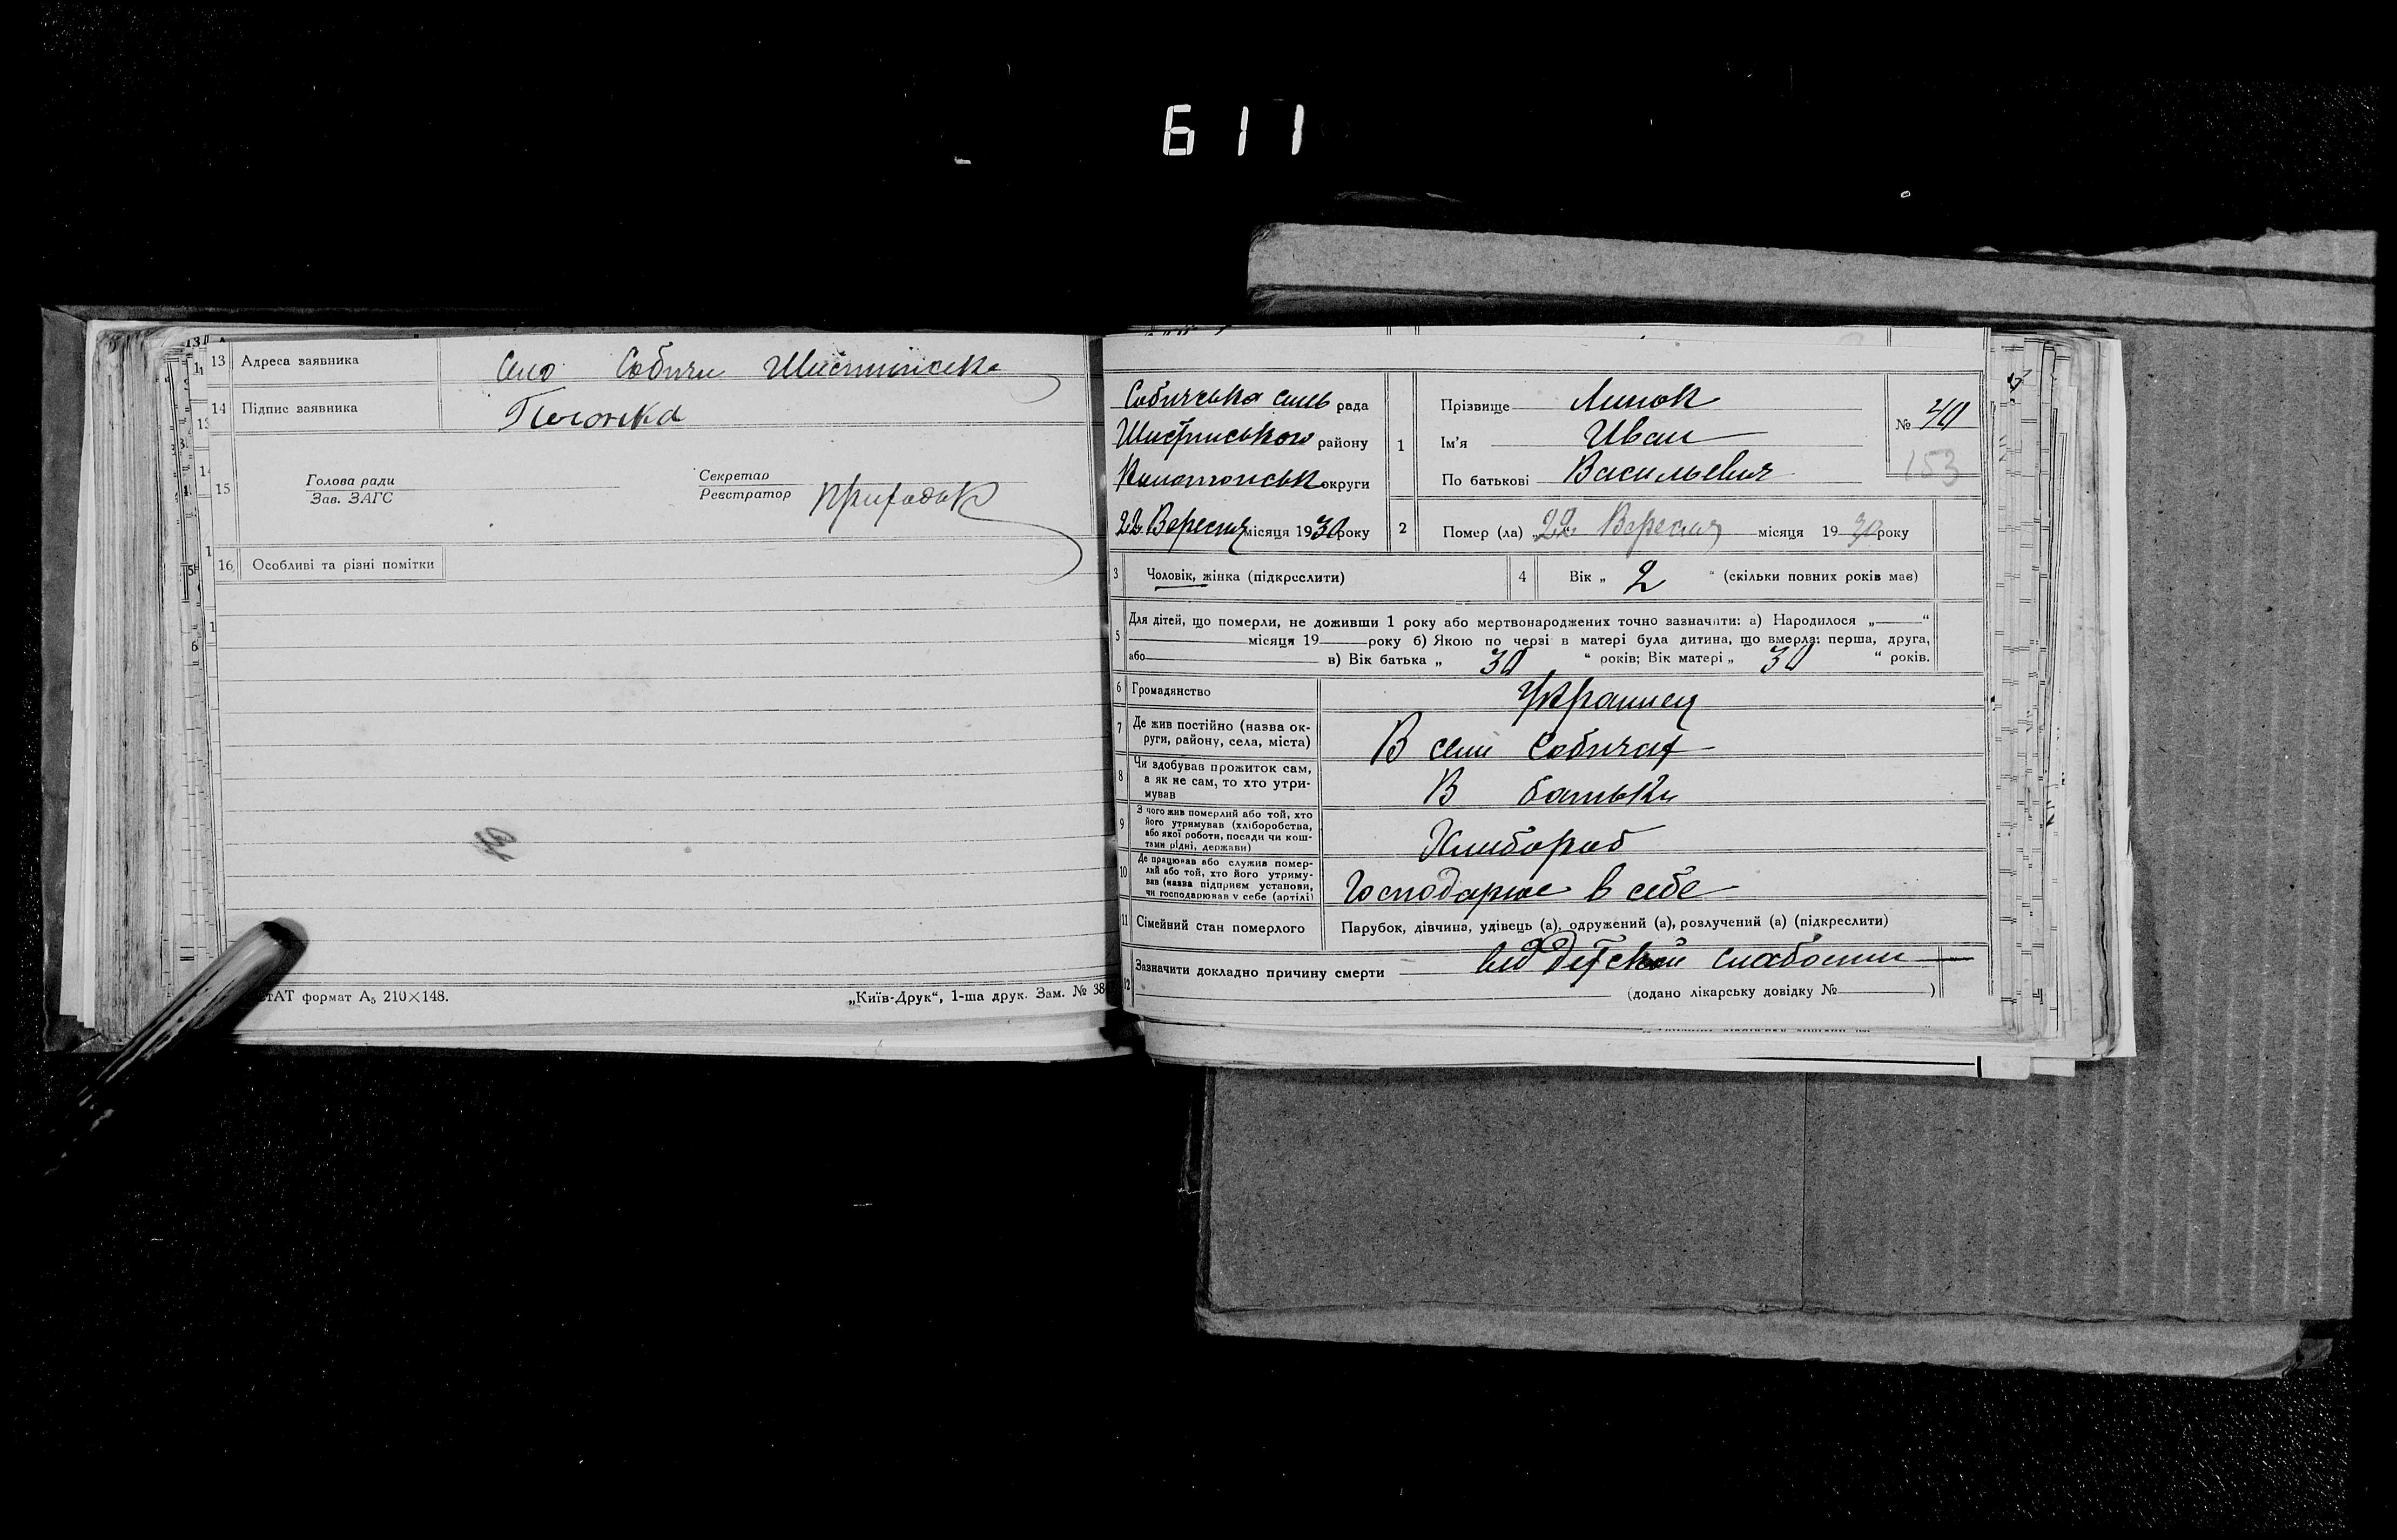 611
13 Адреса заявника Село Собичи Шостинська
14 Підпис заявника
15 Голова ради
Зав. ЗАГС
Секретар
Реєстратор
16 Особливі та різні помітки
формат А₅ 210×148.
„Київ-Друк“, 1-ша друк. Зам. № 38
Собичська сель рада
району
округи
22 Вересня місяця 1930 року
1 Прізвище Линок
Ім'я Иван
По батькові Васильевич
№ 40
153
2 Помер (ла) „22“ Вересня місяця 1930 року
3 Чоловік, жінка (підкреслити)
4 Вік „ 2 “ (скільки повних років має)
5 Для дітей, що померли, не доживши 1 року або мертвонароджених точно зазначити: а) Народилося „ “
місяця 19 року б) Якою по черзі в матері була дитина, що вмерла: перша, друга,
або в) Вік батька „ 30 “ років; Вік матері „ 30 “ років.
6 Громадянство Украинец
7 Де жив постійно (назва ок-
руги, району, села, міста)
В селі Собичах
8 Чи здобував прожиток сам,
а як не сам, то хто утри-
мував
В батьки
9 З чого жив померлий або той, хто
його утримував (хліборобства,
або якої роботи, посади чи кош-
тами рідні, держави)
Хлибороб
10 Де працював або служив помер-
лий або той, хто його утриму-
вав (назва підприєм установи,
чи господарював у себе (артілі)
Господарює в себе
11 Сімейний стан померлого Парубок, дівчина, удівець (а), одружений (а), розлучений (а) (підкреслити)
12 Зазначити докладно причину смерти від детской слабости
(додано лікарську довідку № )